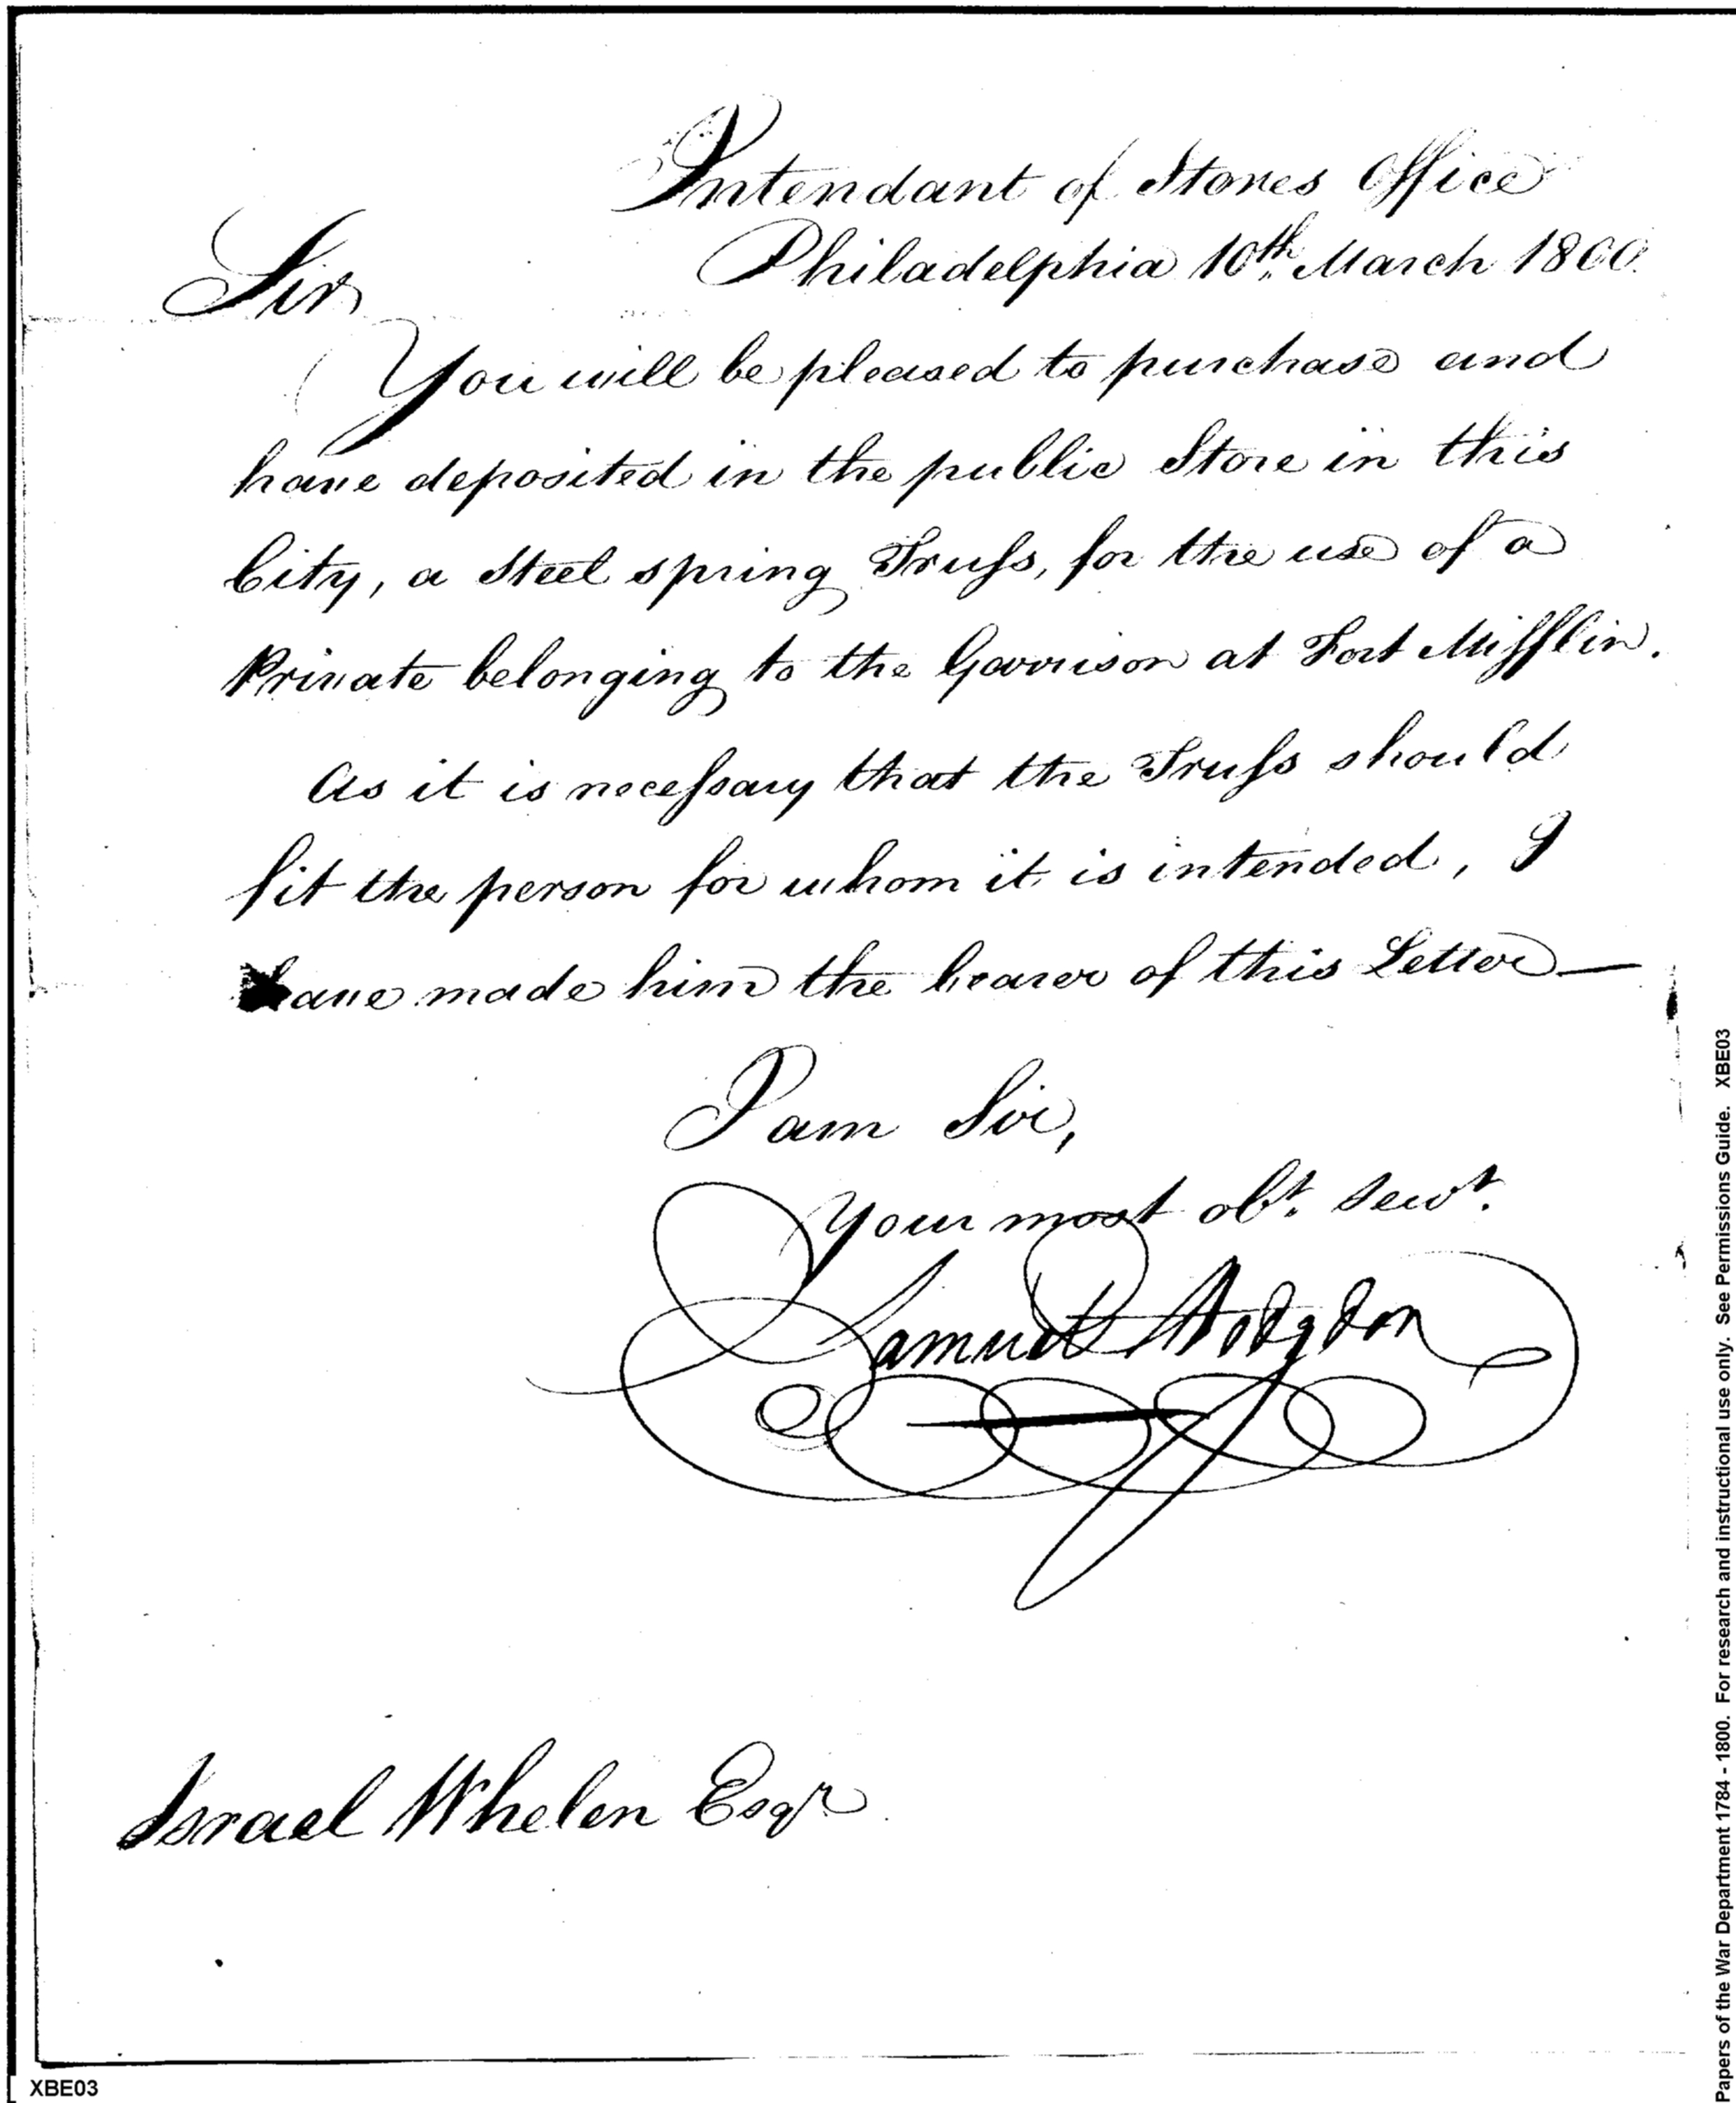 Intendant of Stores Office
Philadelphia 10th. March 1800.
Sir
You will be pleased to purchase and
have deposited in the public Store in this
City, a Steel spring Truſs, for the use of a
Private belonging to the Garrison at Fort Mifflin.
As it is neceſsary that the Truſs should
fit the person for whom it is intended, I
have made him the bearer of this Letter—
I am Sir,
Your most obt. Servt.
Samuel Hodgdon
Israel Whelen Esqr
XBE03
Papers of the War Department 1784 - 1800. For research and instructional use only. See Permissions Guide. XBE03